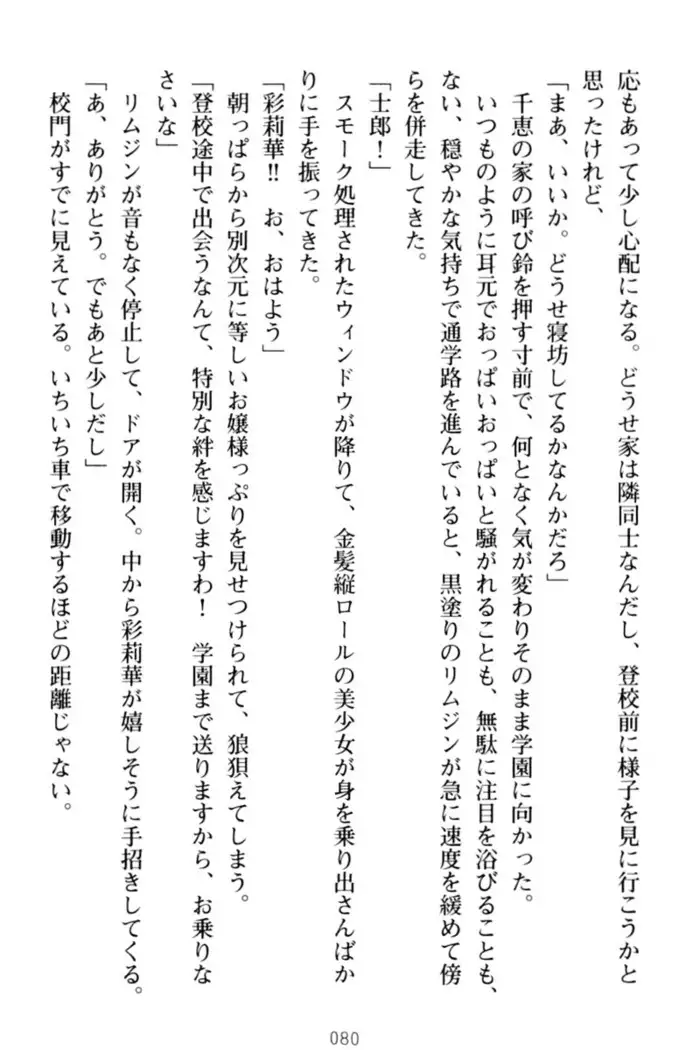 応もあって少し心配になる。どうせ家は隣同士なんだし、登校前に様子を見に行こうかと
思ったけれど、
「まあ、いいか。どうせ寝坊してるかなんかだろ」
千恵の家の呼び鈴を押す寸前で、何となく気が変わりそのまま学園に向かった。
いつものように耳元でおっぱいおっぱいと騒がれることも、無駄に注目を浴びることも、
ない、穏やかな気持ちで通学路を進んでいると、黒塗りのリムジンが急に速度を緩めて傍
らを併走してきた。
「士郎！」
スモーク処理されたウィンドウが降りて、金髪縦ロールの美少女が身を乗り出さんばか
りに手を振ってきた。
「彩莉華!!　お、おはよう」
朝っぱらから別次元に等しいお嬢様っぷりを見せつけられて、狼狽えてしまう。
「登校途中で出会うなんて、特別な絆を感じますわ！　学園まで送りますから、お乗りな
さいな」
リムジンが音もなく停止して、ドアが開く。中から彩莉華が嬉しそうに手招きしてくる。
「あ、ありがとう。でもあと少しだし」
校門がすでに見えている。いちいち車で移動するほどの距離じゃない。
080